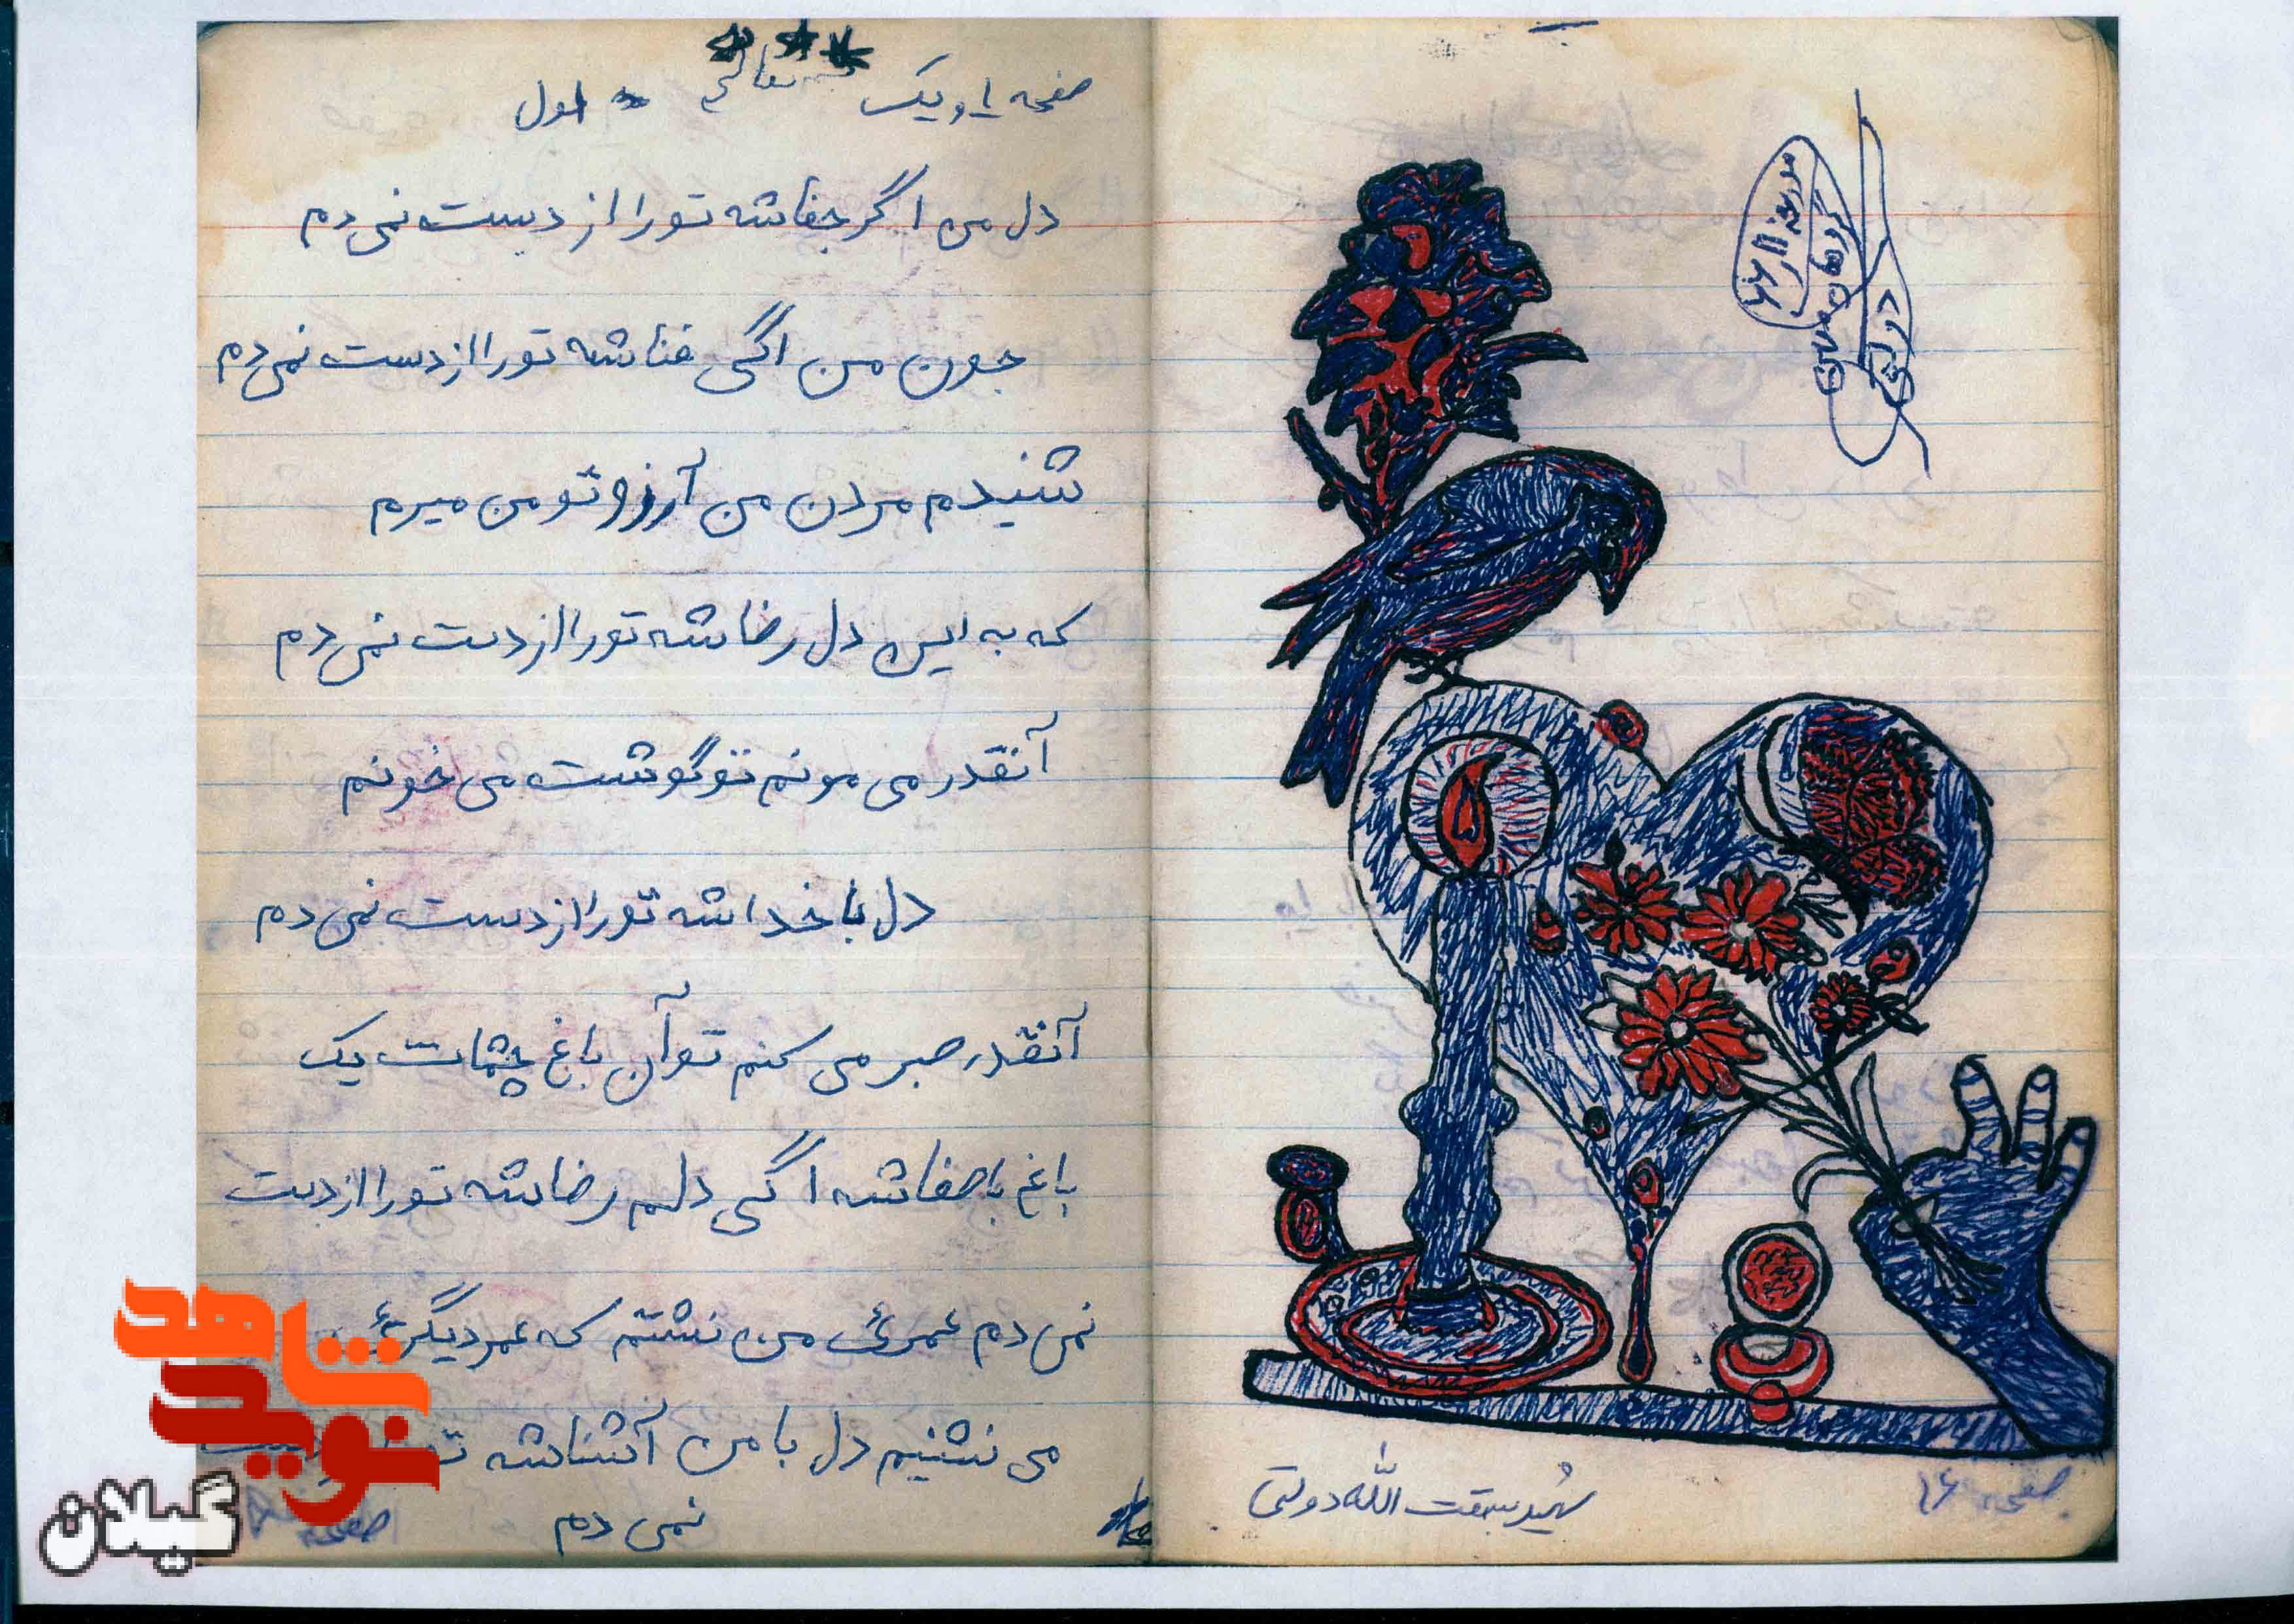 صفحه ۱ و یک بسمه تعالی اول
دل من اگر جفاشه تو را از دست نمی دم
جون من اگی فناشه تو را از دست نمی دم
شنیدم مردن من آرزو تو من میرم
که به این دل رضاشه تو را از دست نمی دم
آنقدر می مونم تو گوشت می خونم
دل با خداشه تو را از دست نمی دم
آنقدر صبر می کنم تو آن باغ چشمات یک
باغ باصفاشه اگی دلم رضاشه تو را از دست
نمی دم عمری من نشتم که عمر دیگری
می نشنیم دل با من آشناشه دست
نمی دم
صفحه
صفحه ۱۶
شهید سبقت الله دولتی
نوید شاهد
گیلان